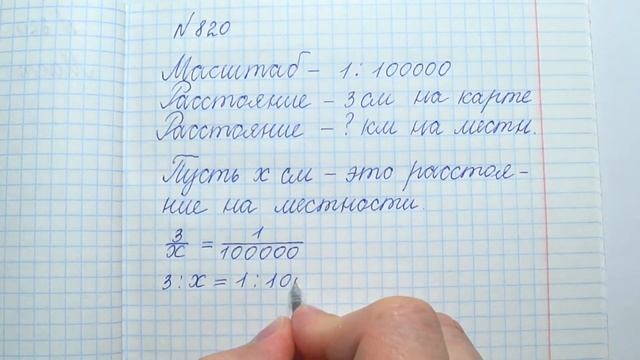 № 820
Масштаб – 1 : 100000
Расстояние – 3 см на карте
Расстояние – ? км на местн.
Пусть x см – это расстоя-
ние на местности.
3/x = 1/100000
3 : x = 1 : 10